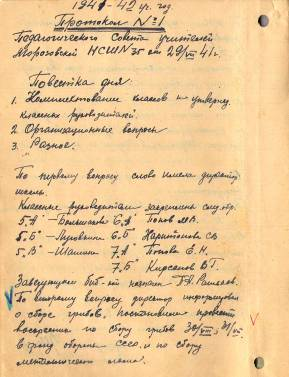 1941-42 уч. год.
Протокол №1
Педагогического Совета учителей
Морозовской НСШ № от 29/VIII 41 г.
Повестка дня:
1. Комплектование классов и утвержд.
классных руководителей.
2 Организационные вопросы
3. Разное.
По первому вопросу слово имела директор
школы.
Классные руководители закреплены след. обр.
5 "А" - Большакова 6 "А" Попов М.В.
5 "Б" - 6 "Б" Харитонова
5 "В" - Шамина 7 "А" Попова Е.Н.
7 "Б" Кирсанов В.Г.
Заведующим назначен
По второму вопросу директор информировал
о сборе грибов. постановили провести
воскресник по сбору грибов 30/VIII, 31/VIII
в фонд обороны СССР и по сбору
металлического лома.